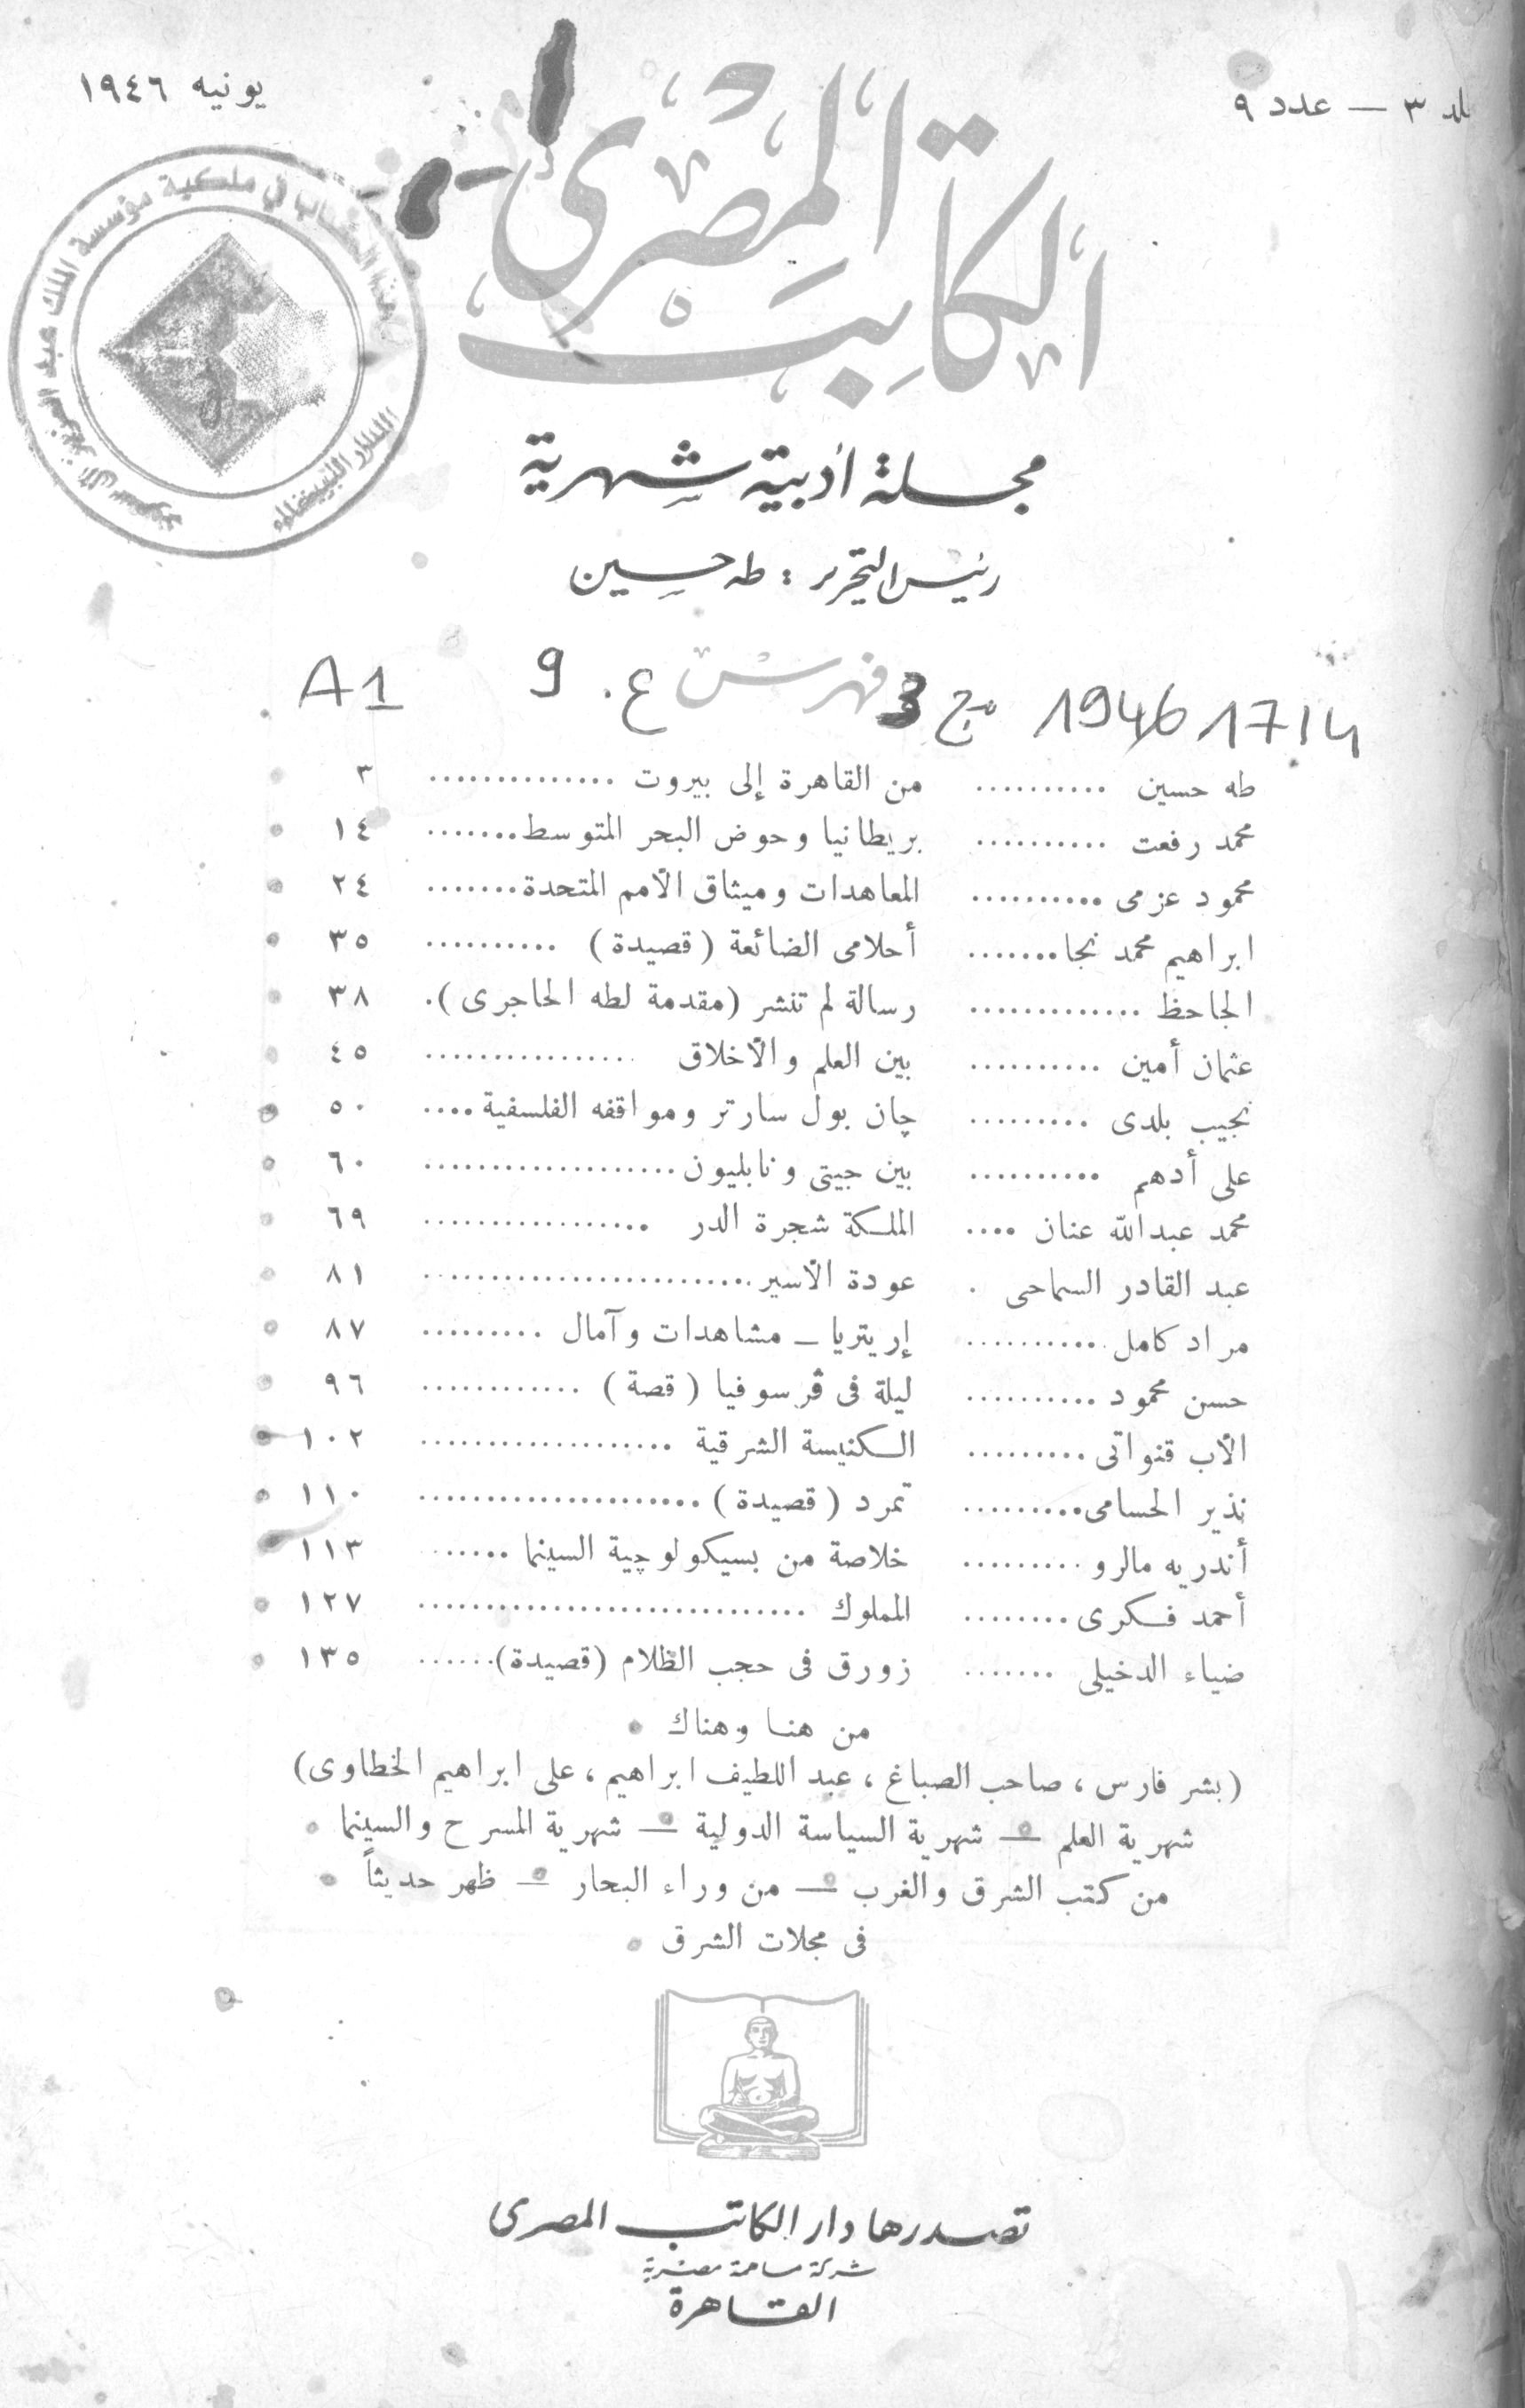 لد ٣ — عدد ٩
يونيه ١٩٤٦
الكاتب المِصْرى
هذا الكتاب في ملكية مؤسسة الملك عبد العزيز آل سعود
الدار البيضاء
مجلة أدبية شهرية
رئيس التحرير : طه حسين
فهرس
1714 1946 مج 3 ع. 9 A1
طه حسين .......... من القاهرة إلى بيروت .............. ٣
محمد رفعت .......... بريطانيا وحوض البحر المتوسط....... ١٤
محمود عزمى .......... المعاهدات وميثاق الأمم المتحدة....... ٢٤
ابراهيم محمد نجا....... أحلامى الضائعة (قصيدة) .......... ٣٥
الجاحظ ............. رسالة لم تنشر (مقدمة لطه الحاجرى). ٣٨
عثمان أمين .......... بين العلم والأخلاق ................ ٤٥
نجيب بلدى ......... چان بول سارتر ومواقفه الفلسفية .... ٥٠
على أدهم .......... بين جيتى ونابليون................... ٦٠
محمد عبدالله عنان .... الملكة شجرة الدر ................. ٦٩
عبد القادر السماحى . عودة الأسير......................... ٨١
مراد كامل .......... إريتريا — مشاهدات وآمال ......... ٨٧
حسن محمود .......... ليلة فى ڤرسوفيا (قصة) ............ ٩٦
الأب قنواتى ......... الكنيسة الشرقية ................... ١٠٢
نذير الحسامى......... تمرد (قصيدة) ..................... ١١٠
أندريه مالرو ......... خلاصة من بسيكولوچية السينما ....... ١١٣
أحمد فكرى ........ المملوك ............................. ١٢٧
ضياء الدخيلى ....... زورق فى حجب الظلام (قصيدة)...... ١٣٥
من هنا وهناك
(بشر فارس ، صاحب الصباغ ، عبد اللطيف ابراهيم ، على ابراهيم الخطاوى)
شهرية العلم — شهرية السياسة الدولية — شهرية المسرح والسينما
من كتب الشرق والغرب — من وراء البحار — ظهر حديثاً
فى مجلات الشرق
تصدرها دار الكاتب المصرى
شركة مساهمة مصرية
القاهرة